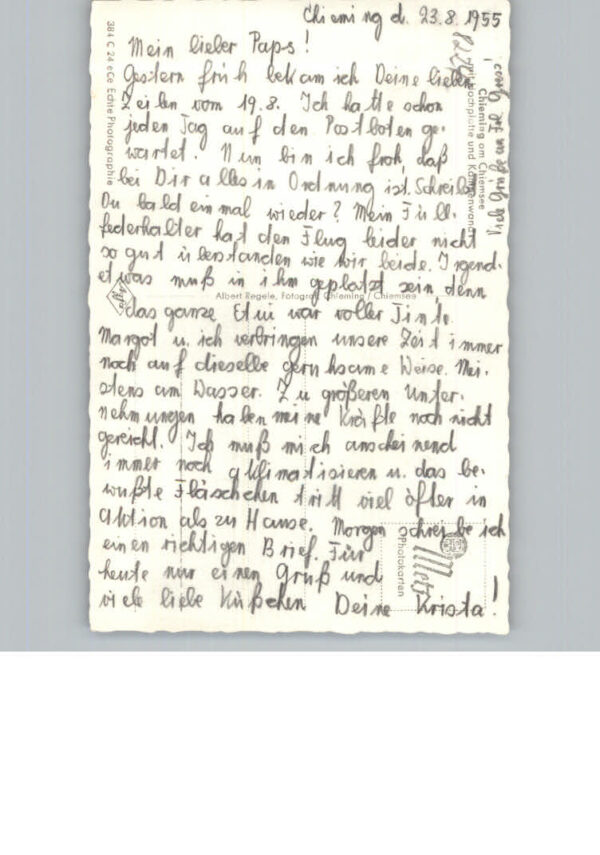 Chieming d. 23.8.1955
Mein lieber Paps!
Gestern früh bekam ich Deine lieben
Zeilen vom 19.8. Ich hatte schon
jeden Tag auf den Postboten ge-
wartet. Nun bin ich froh, daß
bei Dir alles in Ordnung ist. Schreibst
Du bald einmal wieder? Mein Füll-
federhalter hat den Flug leider nicht
so gut überstanden wie wir beide. Irgend-
etwas muß in ihm geplatzt sein, denn
das ganze Etui war voller Tinte.
Margot u. ich verbringen unsere Zeit immer
noch auf dieselbe geruhsame Weise. Mei-
stens am Wasser. Zu größeren Unter-
nehmungen haben meine Kräfte noch nicht
gereicht. Ich muß mich anscheinend
immer noch aklimatisieren u. das be-
wußte Fläschchen tritt viel öfter in
Aktion als zu Hause. Morgen schreibe ich
einen richtigen Brief. Für
heute nur einen Gruß und
viele liebe Küßchen Deine Krista!
384 C 24 eCe Echte Photographie
Chieming am Chiemsee
mit Hochplatte und Kampenwand
Albert Regele, Fotograf, Chieming / Chiemsee
Agfa
Photokarten